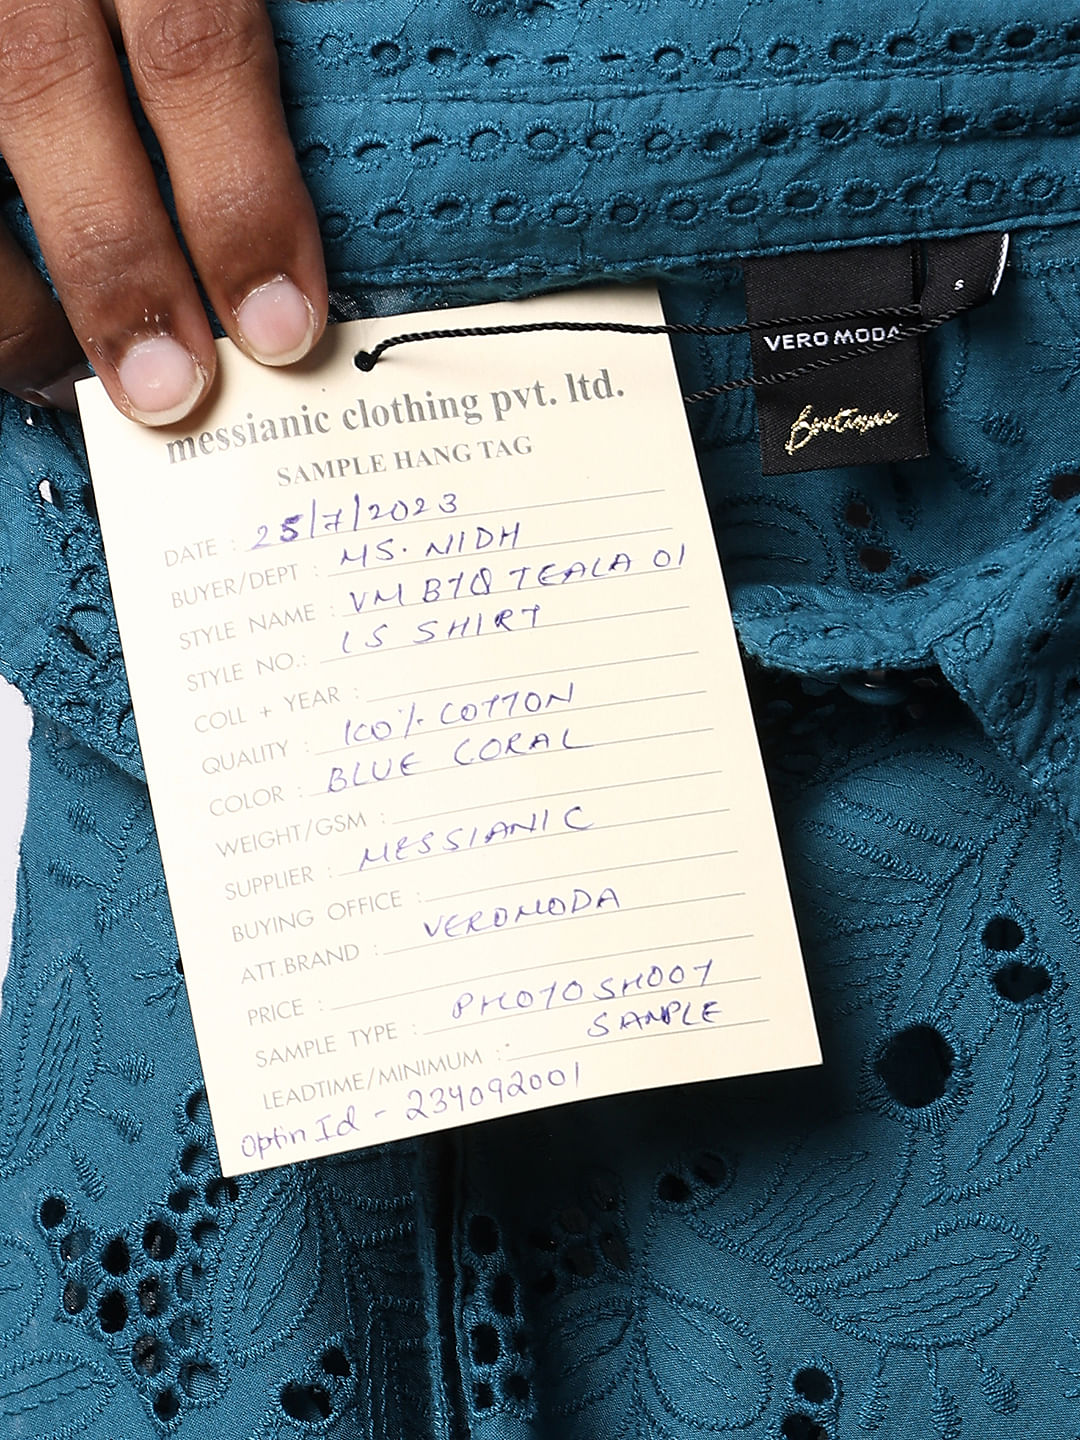 messianic clothing pvt. ltd.
SAMPLE HANG TAG
DATE : 25/7/2023
BUYER/DEPT : MS. NIDH
STYLE NAME : VM BTQ TEALA 01
STYLE NO.: LS SHIRT
COLL + YEAR :
QUALITY : 100% COTTON
COLOR : BLUE CORAL
WEIGHT/GSM :
SUPPLIER : MESSIANIC
BUYING OFFICE :
ATT.BRAND : VEROMODA
PRICE :
SAMPLE TYPE : PHOTOSHOOT
SAMPLE
LEADTIME/MINIMUM :
Optin Id - 234092001
VERO MODA
Boutique
S